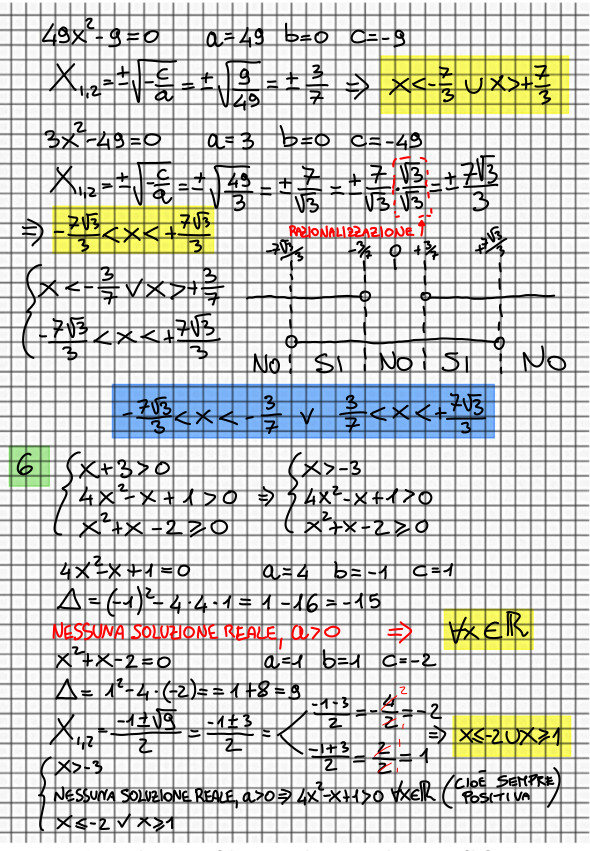 49x²-9=0 a=49 b=0 c=-9
X₁,₂=±√(-c/a)=±√(9/49)=±3/7 ⇒ x<-7/3 ∪ x>+7/3
3x²-49=0 a=3 b=0 c=-49
X₁,₂=±√(-c/a)=±√(49/3)=±7/√3=±7/√3·√3/√3=±7√3/3
RAZIONALIZZAZIONE↑
⇒ -7√3/3<x<+7√3/3
-7√3/3 -3/7 0 +3/7 +7√3/3
{x<-3/7 ∨ x>+3/7
-7√3/3<x<+7√3/3
NO SI NO SI NO
-7√3/3<x<-3/7 ∨ 3/7<x<+7√3/3
6 {x+3>0 {x>-3
4x²-x+1>0 ⇒ 4x²-x+1>0
x²+x-2⩾0 x²+x-2⩾0
4x²-x+1=0 a=4 b=-1 c=1
Δ=(-1)²-4·4·1=1-16=-15
NESSUNA SOLUZIONE REALE, a>0 ⇒ ∀x∈ℝ
x²+x-2=0 a=1 b=1 c=-2
Δ=1²-4·(-2)==1+8=9
X₁,₂=(-1±√9)/2=(-1±3)/2=< (-1-3)/2=-4/2=-2 2
(-1+3)/2=2/2=1
⇒ x⩽-2∪x⩾1
{x>-3
NESSUNA SOLUZIONE REALE, a>0⇒4x²-x+1>0 ∀x∈ℝ (CIOÈ SEMPRE POSITIVA)
x⩽-2 ∨ x⩾1